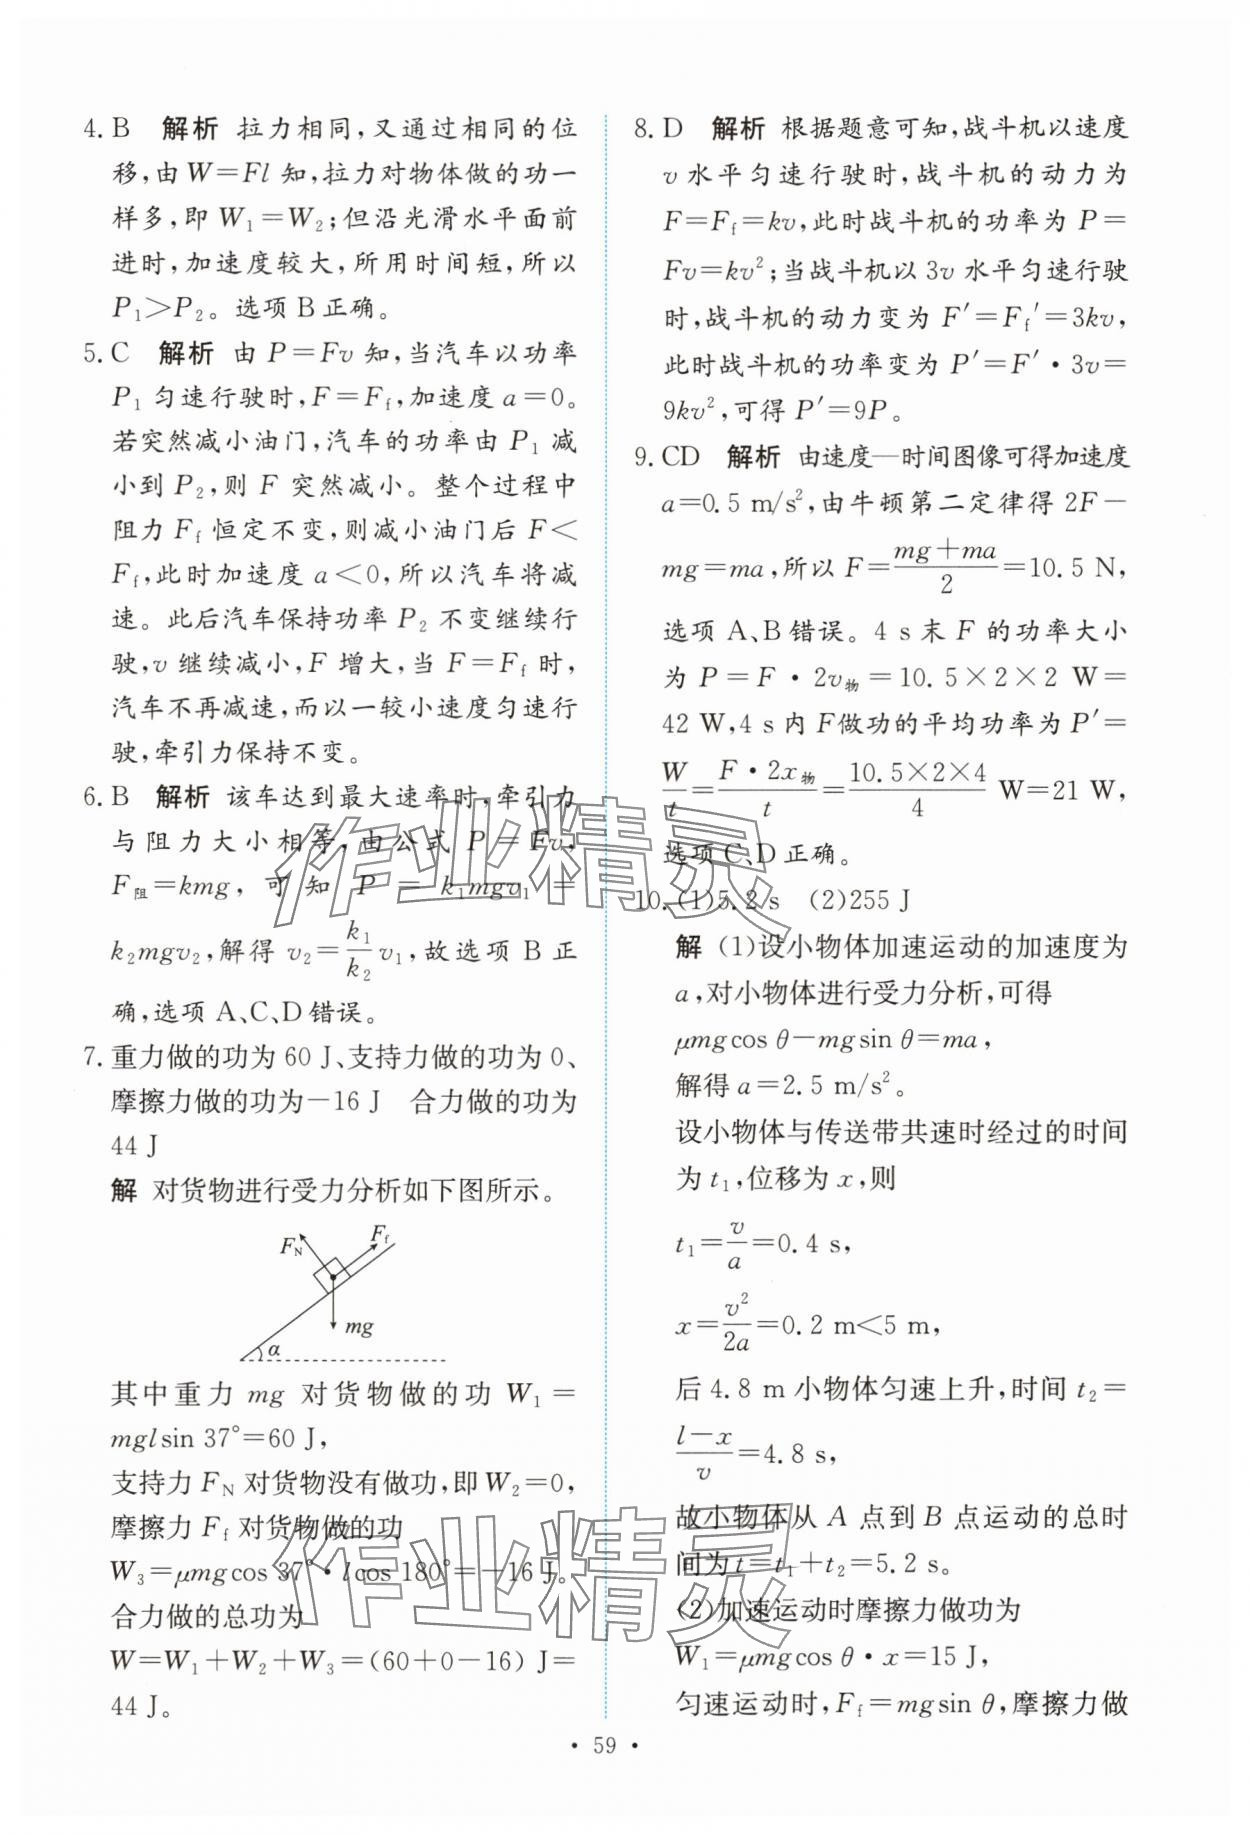 4. B 解析 拉力相同,又通过相同的位
移,由 W=Fl 知,拉力对物体做的功一
样多,即 W₁=W₂;但沿光滑水平面前
进时,加速度较大,所用时间短,所以
P₁>P₂。选项 B 正确。
5. C 解析 由 P=Fv 知,当汽车以功率
P₁ 匀速行驶时,F=F_f,加速度 a=0。
若突然减小油门,汽车的功率由 P₁ 减
小到 P₂,则 F 突然减小。整个过程中
阻力 F_f 恒定不变,则减小油门后 F<
F_f,此时加速度 a<0,所以汽车将减
速。此后汽车保持功率 P₂ 不变继续行
驶,v 继续减小,F 增大,当 F=F_f 时,
汽车不再减速,而以一较小速度匀速行
驶,牵引力保持不变。
6. B 解析 该车达到最大速率时,牵引力
与阻力大小相等,由公式 P=Fv,
F阻=kmg,可知 P=k₁mgv₁=
k₂mgv₂,解得 v₂=k₁/k₂ v₁,故选项 B 正
确,选项 A、C、D 错误。
7. 重力做的功为 60 J、支持力做的功为 0、
摩擦力做的功为-16 J 合力做的功为
44 J
解 对货物进行受力分析如下图所示。
F_N F_f
mg
α
其中重力 mg 对货物做的功 W₁=
mgl sin 37°=60 J,
支持力 F_N 对货物没有做功,即 W₂=0,
摩擦力 F_f 对货物做的功
W₃=μmgcos 37°·lcos 180°=-16 J。
合力做的总功为
W=W₁+W₂+W₃=(60+0-16) J=
44 J。
8. D 解析 根据题意可知,战斗机以速度
v 水平匀速行驶时,战斗机的动力为
F=F_f=kv,此时战斗机的功率为 P=
Fv=kv²;当战斗机以 3v 水平匀速行驶
时,战斗机的动力变为 F′=F_f′=3kv,
此时战斗机的功率变为 P′=F′·3v=
9kv²,可得 P′=9P。
9. CD 解析 由速度—时间图像可得加速度
a=0.5 m/s²,由牛顿第二定律得 2F-
mg=ma,所以 F=(mg+ma)/2=10.5 N,
选项 A、B 错误。4 s 末 F 的功率大小
为 P=F·2v物=10.5×2×2 W=
42 W,4 s 内 F 做功的平均功率为 P′=
W/t=F·2x物/t=10.5×2×4/4 W=21 W,
选项 C、D 正确。
10. (1)5.2 s (2)255 J
解 (1)设小物体加速运动的加速度为
a,对小物体进行受力分析,可得
μmgcos θ-mgsin θ=ma,
解得 a=2.5 m/s²。
设小物体与传送带共速时经过的时间
为 t₁,位移为 x,则
t₁=v/a=0.4 s,
x=v²/2a=0.2 m<5 m,
后 4.8 m 小物体匀速上升,时间 t₂=
(l-x)/v=4.8 s,
故小物体从 A 点到 B 点运动的总时
间为 t=t₁+t₂=5.2 s。
(2)加速运动时摩擦力做功为
W₁=μmgcos θ·x=15 J,
匀速运动时,F_f=mgsin θ,摩擦力做
· 59 ·
作业精灵
作业精灵